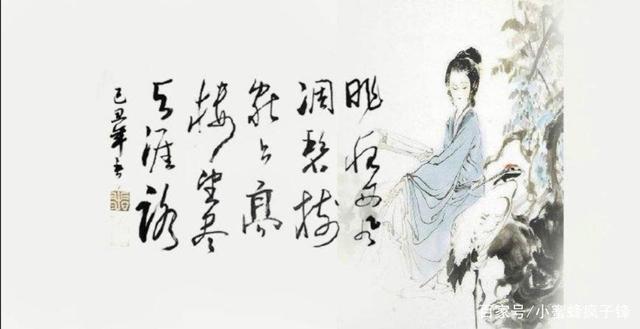 昨夜西风
凋碧树
独上高
楼望尽
天涯路
己丑年书
百家号/小蜜蜂疯子锋